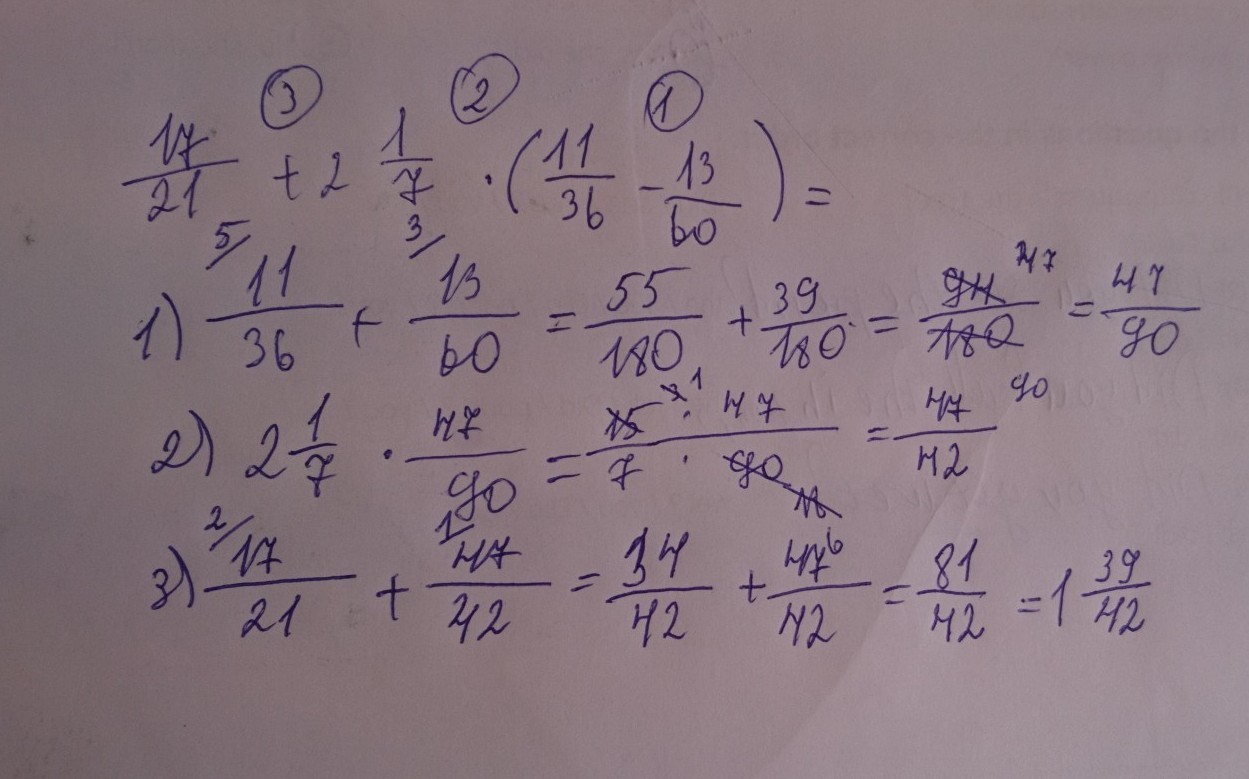 ③ ② ①
17/21 + 2 1/7 · (11/36 - 13/60) =
1) 5/ 11/36 + 3/ 13/60 = 55/180 + 39/180 = 94/180 47 90 = 47/90
2) 2 1/7 · 47/90 = 15 1 · 47 / 7 · 90 6 = 47/42
3) 2/ 17/21 + 1/ 47/42 = 34/42 + 47/42 = 81/42 = 1 39/42